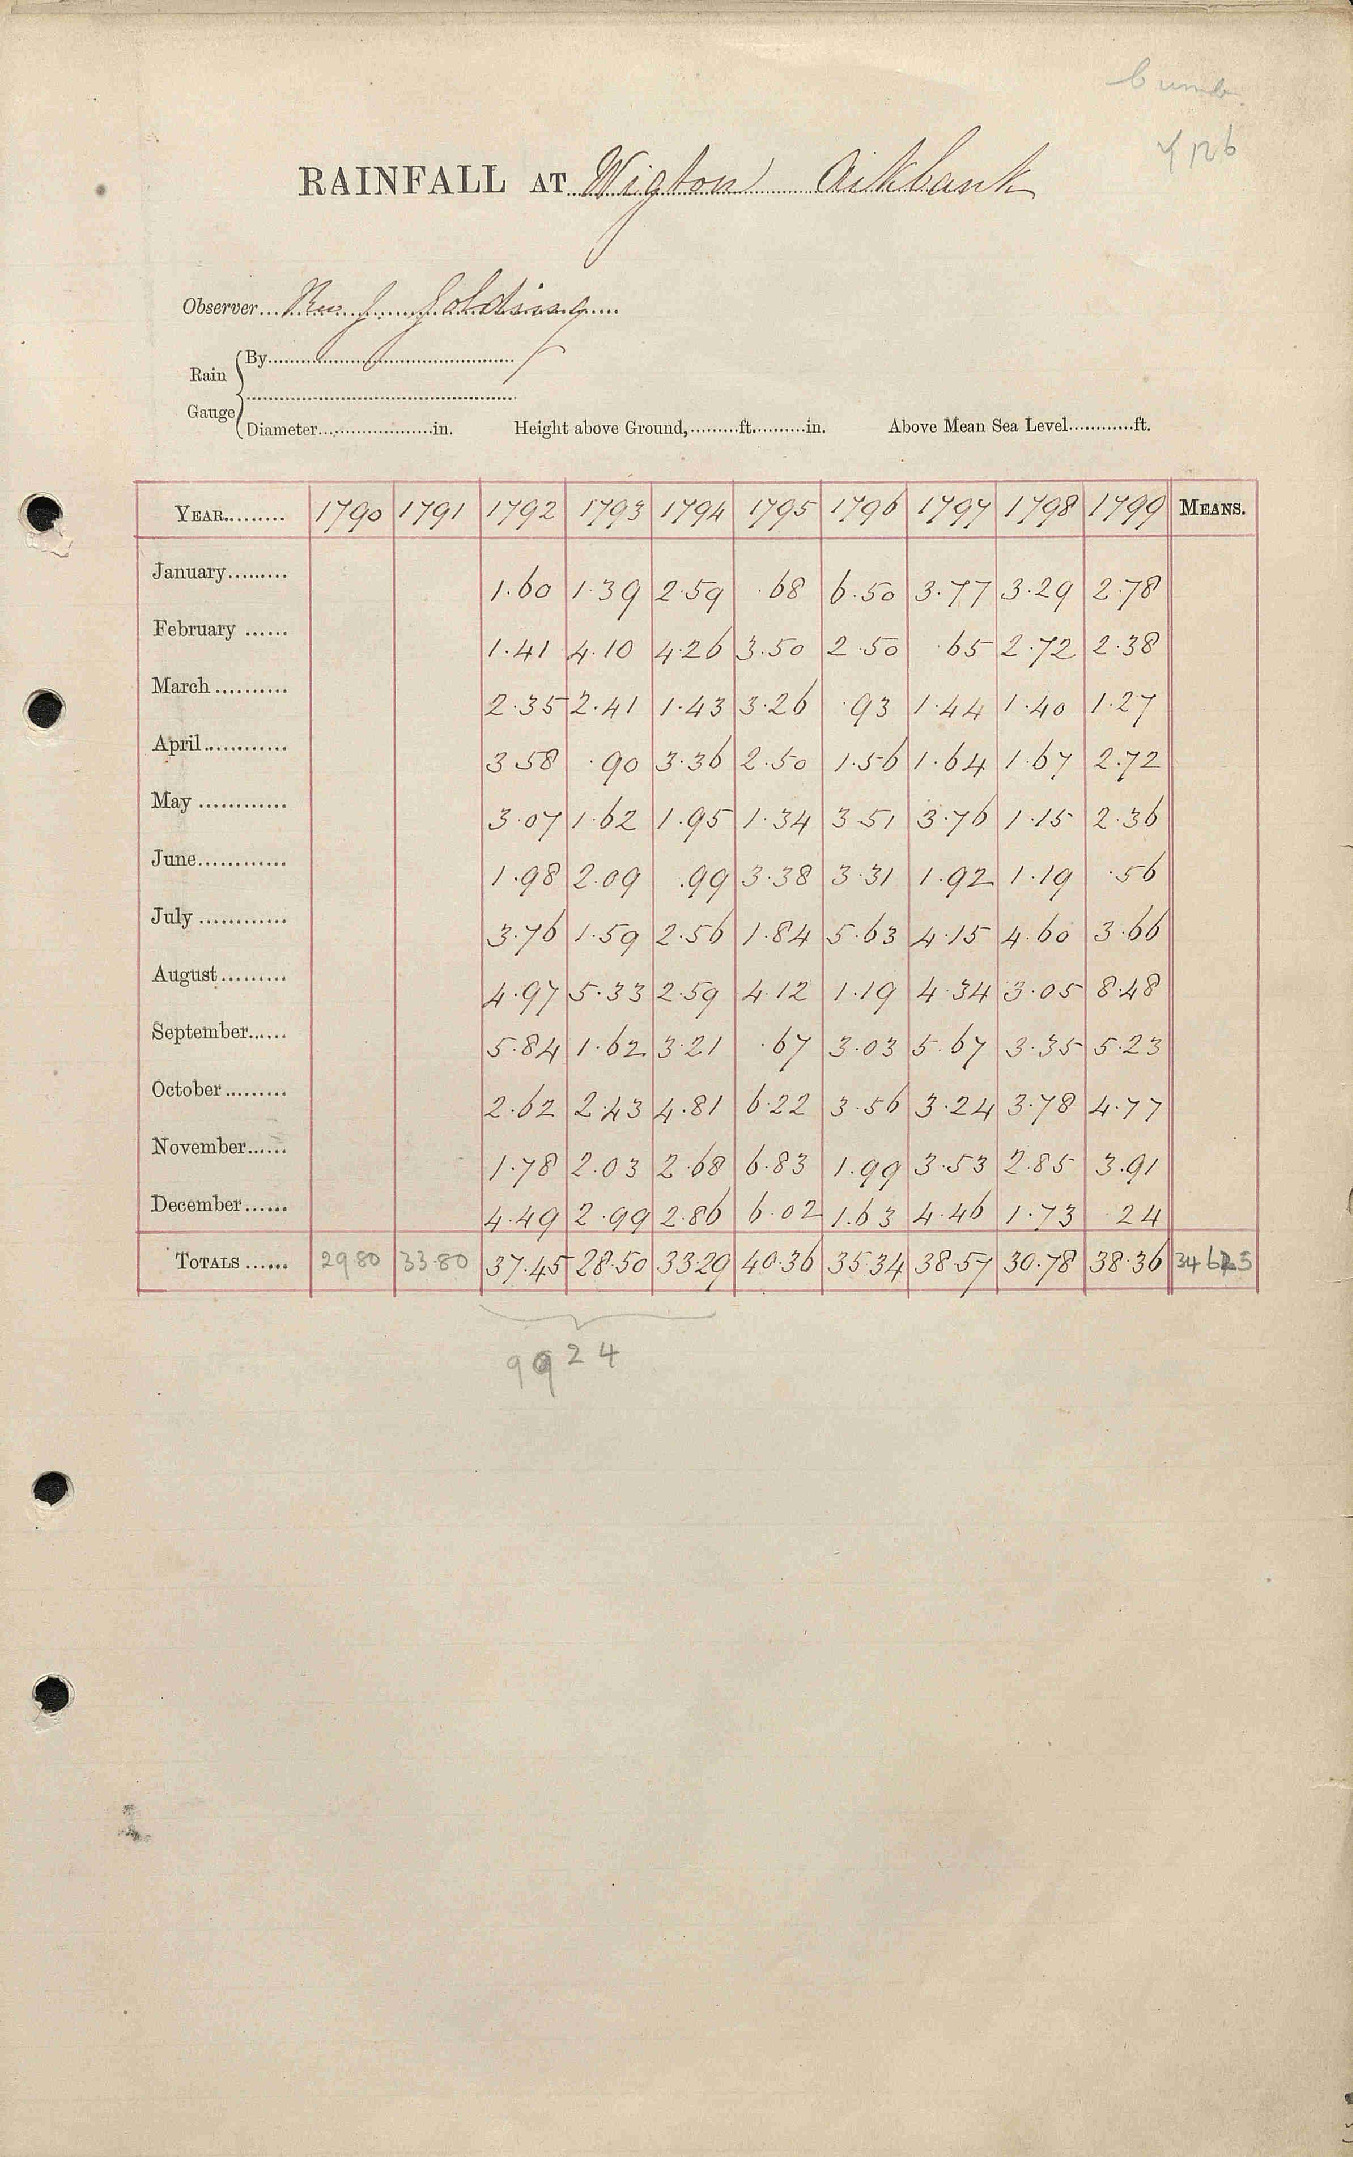 Cumb.
RAINFALL AT Wigton Aikbank
Observer Rev J. Golding
Rain Gauge
By
Diameter in. Height above Ground, ft. in. Above Mean Sea Level ft.
YEAR 1790 1791 1792 1793 1794 1795 1796 1797 1798 1799 MEANS.
January 1.60 1.39 2.59 .68 6.50 3.77 3.29 2.78
February 1.41 4.10 4.26 3.50 2.50 .65 2.72 2.38
March 2.35 2.41 1.43 3.26 .93 1.44 1.40 1.27
April 3.58 .90 3.36 2.50 1.56 1.64 1.67 2.72
May 3.07 1.62 1.95 1.34 3.51 3.76 1.15 2.36
June 1.98 2.09 .99 3.38 3.31 1.92 1.19 .56
July 3.76 1.59 2.56 1.84 5.63 4.15 4.60 3.66
August 4.97 5.33 2.59 4.12 1.19 4.34 3.05 8.48
September 5.84 1.62 3.21 .67 3.03 5.67 3.35 5.23
October 2.62 2.43 4.81 6.22 3.56 3.24 3.78 4.77
November 1.78 2.03 2.68 6.83 1.99 3.53 2.85 3.91
December 4.49 2.99 2.86 6.02 1.63 4.46 1.73 .24
TOTALS 29.80 33.80 37.45 28.50 33.29 40.36 35.34 38.57 30.78 38.36
9924